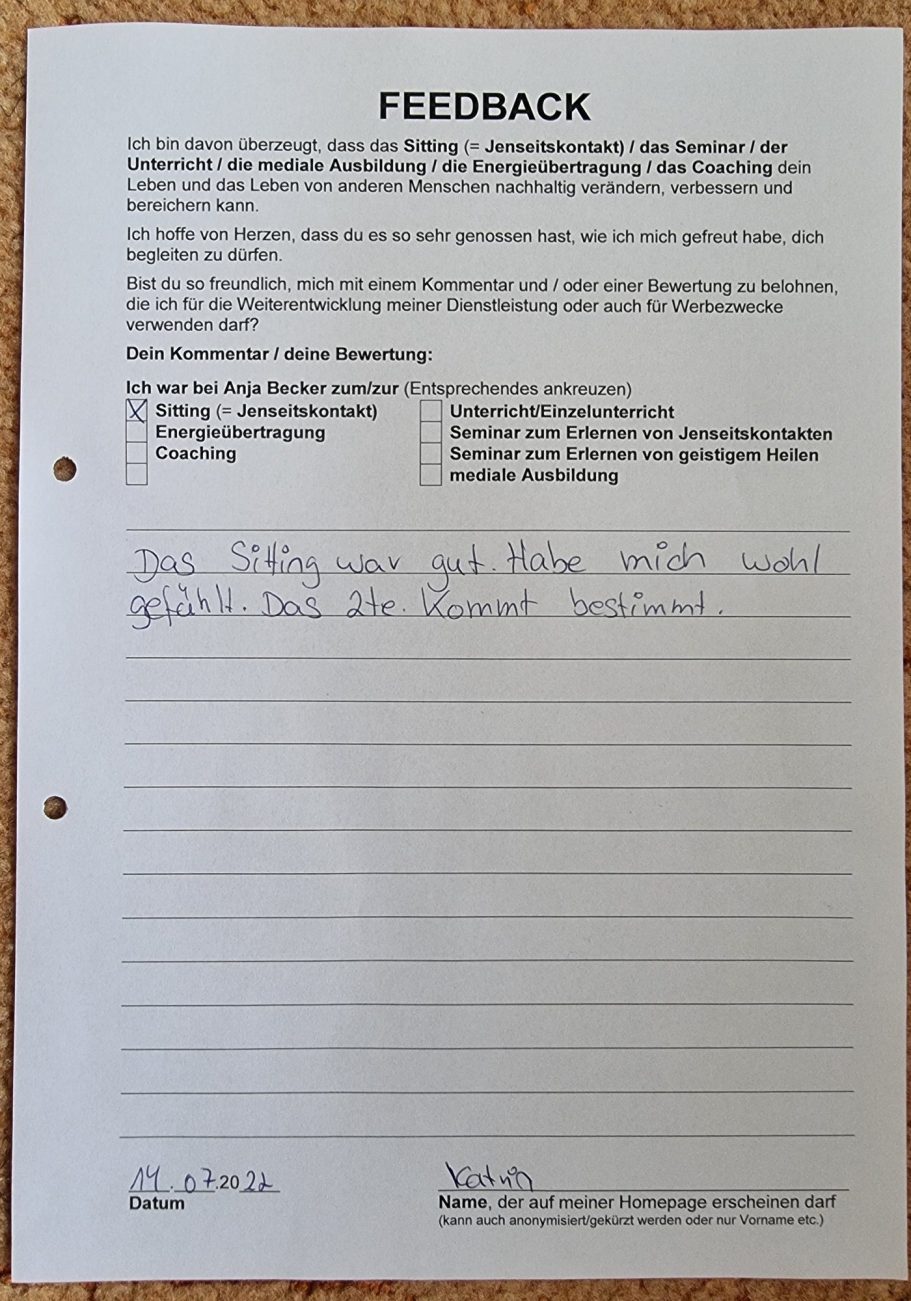 FEEDBACK
Ich bin davon überzeugt, dass das Sitting (= Jenseitskontakt) / das Seminar / der
Unterricht / die mediale Ausbildung / die Energieübertragung / das Coaching dein
Leben und das Leben von anderen Menschen nachhaltig verändern, verbessern und
bereichern kann.
Ich hoffe von Herzen, dass du es so sehr genossen hast, wie ich mich gefreut habe, dich
begleiten zu dürfen.
Bist du so freundlich, mich mit einem Kommentar und / oder einer Bewertung zu belohnen,
die ich für die Weiterentwicklung meiner Dienstleistung oder auch für Werbezwecke
verwenden darf?
Dein Kommentar / deine Bewertung:
Ich war bei Anja Becker zum/zur (Entsprechendes ankreuzen)
X Sitting (= Jenseitskontakt)
Energieübertragung
Coaching
Unterricht/Einzelunterricht
Seminar zum Erlernen von Jenseitskontakten
Seminar zum Erlernen von geistigem Heilen
mediale Ausbildung
Das Sitting war gut. Habe mich wohl
gefühlt. Das 2te. Kommt bestimmt.
14.07.2022
Datum
Katrin
Name, der auf meiner Homepage erscheinen darf
(kann auch anonymisiert/gekürzt werden oder nur Vorname etc.)